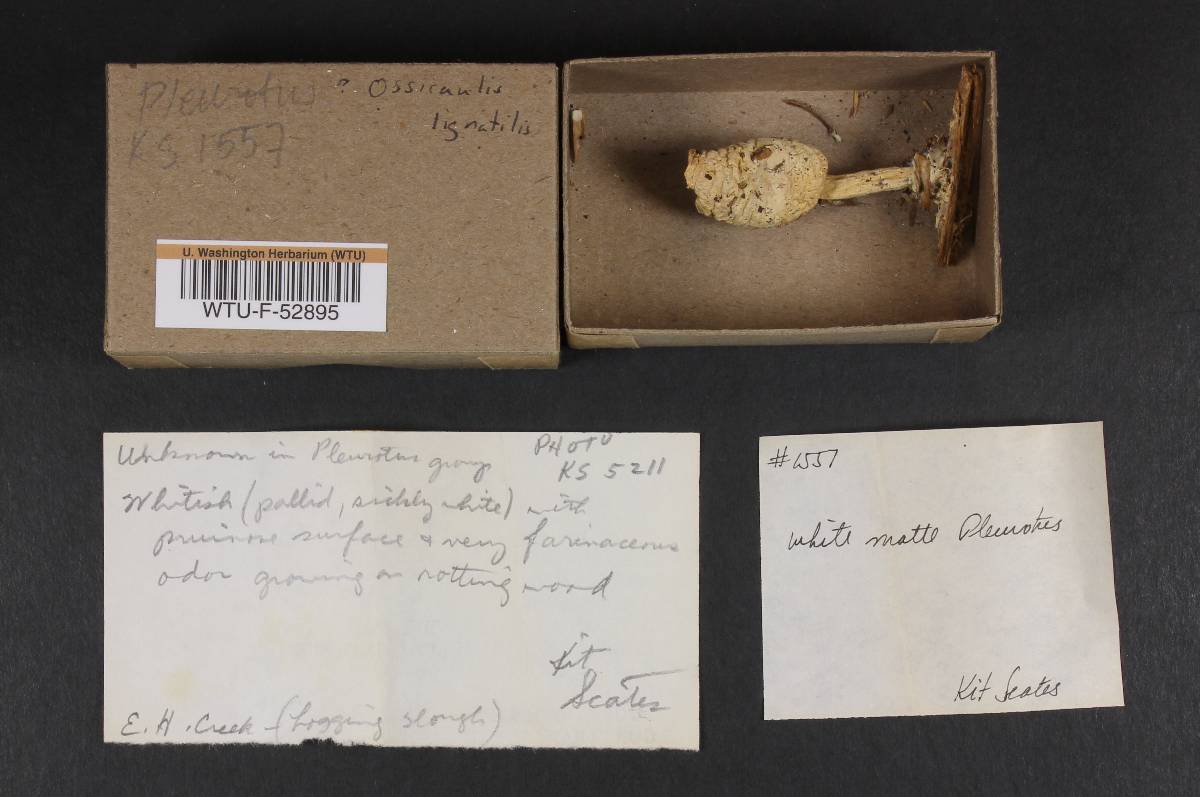 Pleurotus ? Ossicaulis
lignatilis
KS 1557
U. Washington Herbarium (WTU)
WTU-F-52895
Unknown in Pleurotus group
PHOTO
KS 5211
Whitish (pallid, sickly white) with
pruinose surface & very farinaceous
odor growing on rotting wood
Kit
Scates
E. H. Creek - (Logging slough)
#1557
white matte Pleurotus
Kit Scates